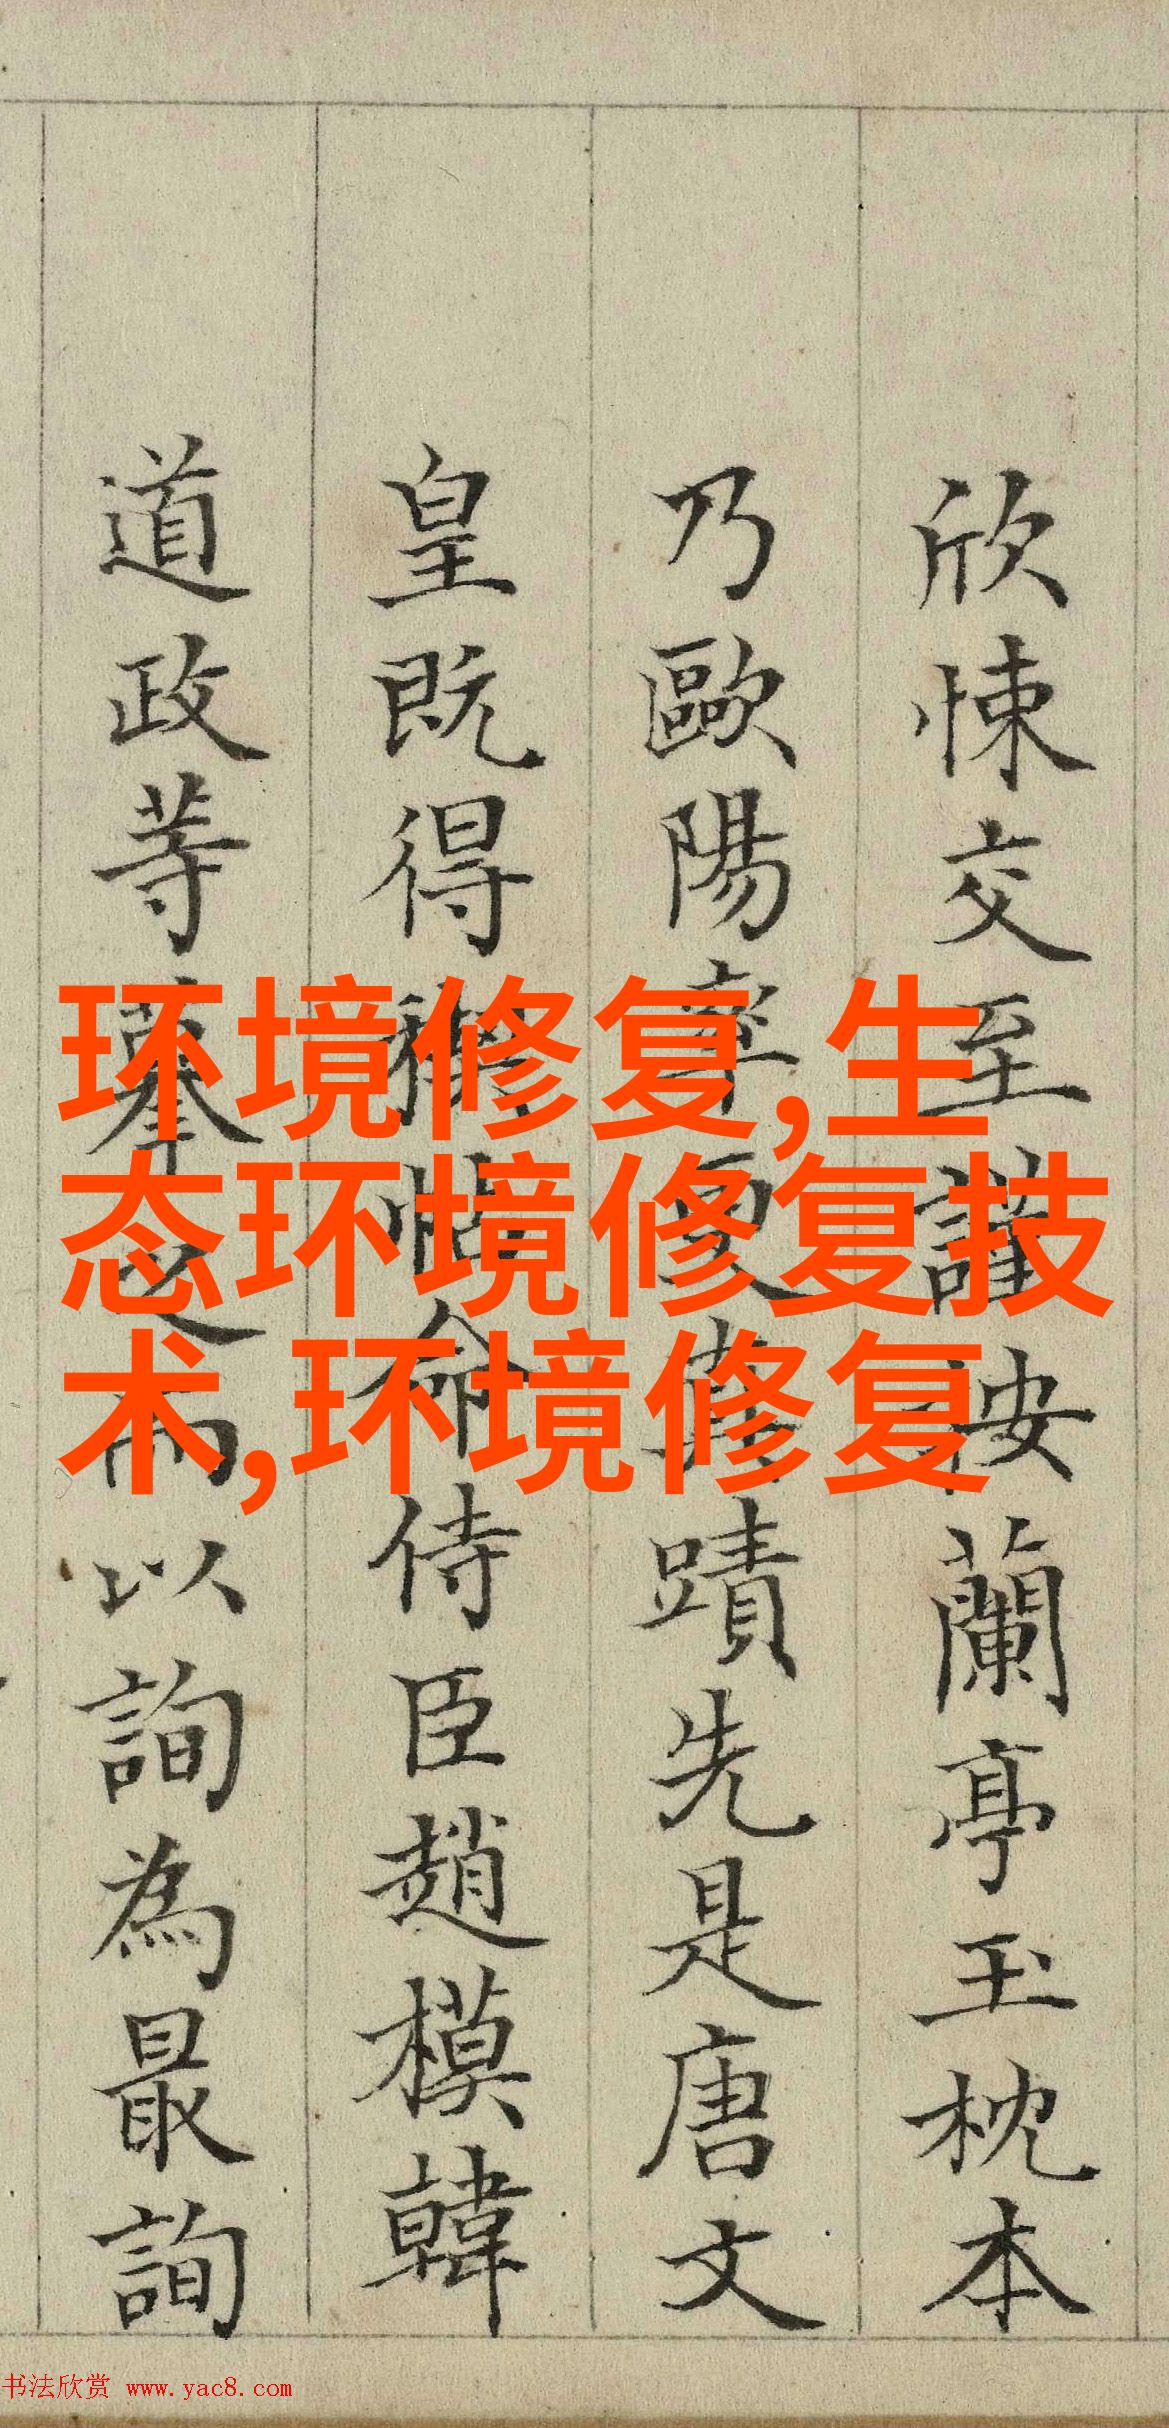 欣悚交至謹按蘭亭玉枕本
乃歐陽率更真蹟先是唐文
皇既得禊帖命侍臣趙模韓
道政等摹之而以詢為最詢
环境修复,生
态环境修复技
术,环境修复
书法欣赏 www.yac8.com